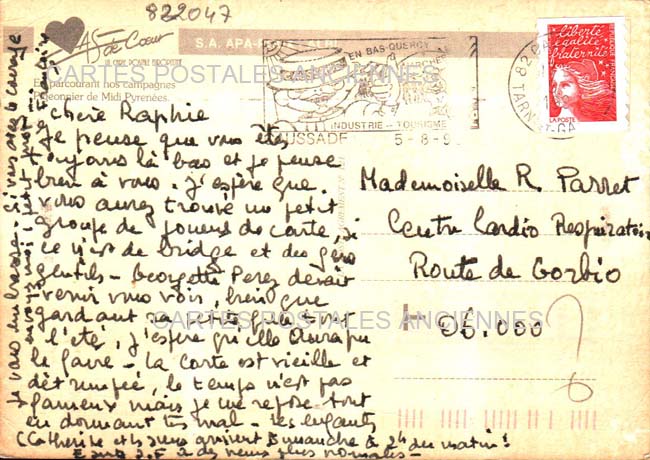 822047
As de Cœur
LA CARTE POSTALE
S.A. APA-
En parcourant nos campagnes
Pigeonnier de Midi Pyrénées.
CARTES POSTALES ANCIENNES
EN BAS-QUERCY
INDUSTRIE - TOURISME
AUSSADE 5-8-9
82
TARN-ET-GA
liberté
égalité
fraternité
RÉPUBLIQUE FRANÇAISE
LA POSTE
chère Raphie
Je pense que vous êtes
toujours là bas et je pense
bien à vous. J'espère que
vous aurez trouvé un petit
groupe de joueurs de carte, si
ce n'est de bridge et des gens
gentils - Georgette Perez devait
venir vous voir, bien que
gardant sa petite fille tout
l'été, j'espère qu'elle aura pu
le faire - la carte est vieille et
défraichie, le temps n'est pas
fameux mais je me repose tout
en dormant très mal - les enfants
(Catherine et les siens arrivent Dimanche à 2h du matin!
à des heures plus normales -
je vous embrasse - Si vous avez le courage
envoyez moi un petit mot
Mademoiselle R. Parret
Centre Cardio Respiratoire
Route de Gorbio
06.000
CARTES POSTALES ANCIENNES